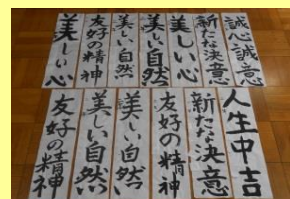 誠心誠意
新たな決意
美しい心
美しい自然
美しい自然
友好の精神
美しい心
人生中吉
新たな決意
友好の精神
美しい自然
美しい自然
友好の精神